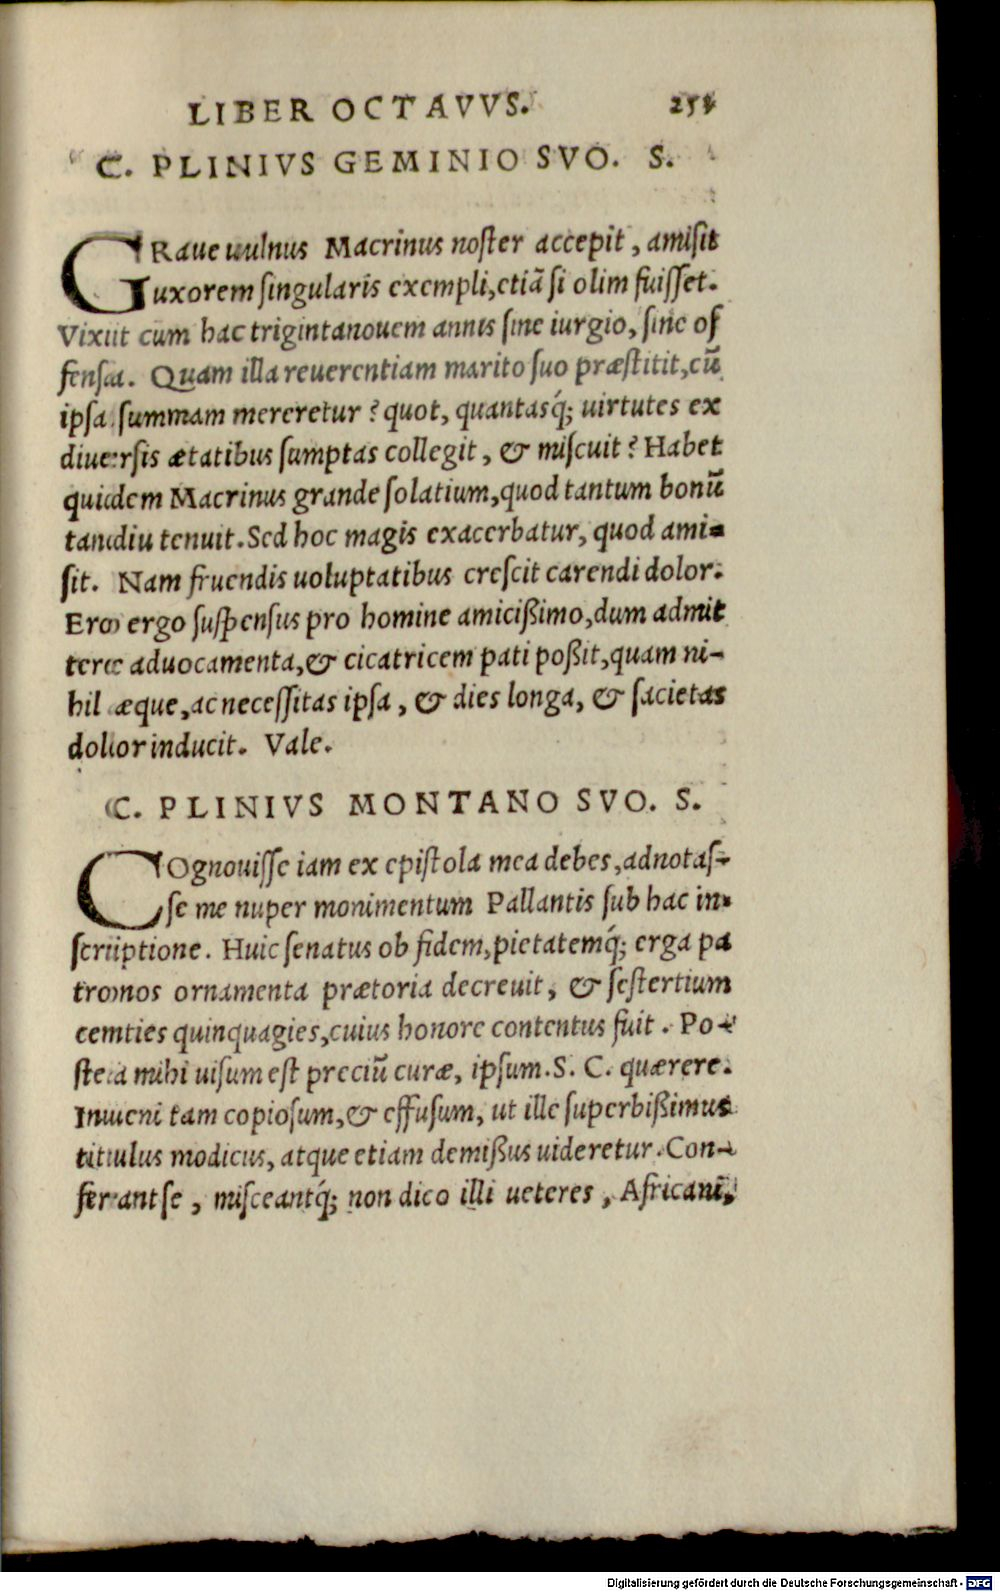 LIBER OCTAVVS.
C. PLINIVS GEMINIO SVO. S.
GRaue uulnus Macrinus noster accepit, amisit
uxorem singularis exempli, etiã si olim fuisset.
Vixit cum hac trigintanouem annis sine iurgio, sine of
fensa. Quam illa reuerentiam marito suo præstitit, cũ
ipsa summam mereretur? quot, quantasq́; uirtutes ex
diuersis ætatibus sumptas collegit, & miscuit? Habet
quidem Macrinus grande solatium, quod tantum bonũ
tamdiu tenuit. Sed hoc magis exacerbatur, quod ami-
sit. Nam fruendis uoluptatibus crescit carendi dolor.
Ero ergo suspensus pro homine amicißimo, dum admit
tere aduocamenta, & cicatricem pati poßit, quam ni-
hil æque, ac necessitas ipsa, & dies longa, & sacietas
dolor inducit. Vale.
C. PLINIVS MONTANO SVO. S.
COgnouisse iam ex epistola mea debes, adnotas-
se me nuper monimentum Pallantis sub hac in-
scriptione. Huic senatus ob fidem, pietatemq́; erga pa
tronos ornamenta prætoria decreuit, & sestertium
centies quinquagies, cuius honore contentus fuit. Po-
stea mihi uisum est preciũ curæ, ipsum. S. C. quærere.
Inueni tam copiosum, & effusum, ut ille superbißimus
titulus modicus, atque etiam demißus uideretur. Con-
ferant se, misceantq́; non dico illi ueteres, Africani,
Digitalisierung gefördert durch die Deutsche Forschungsgemeinschaft - DFG